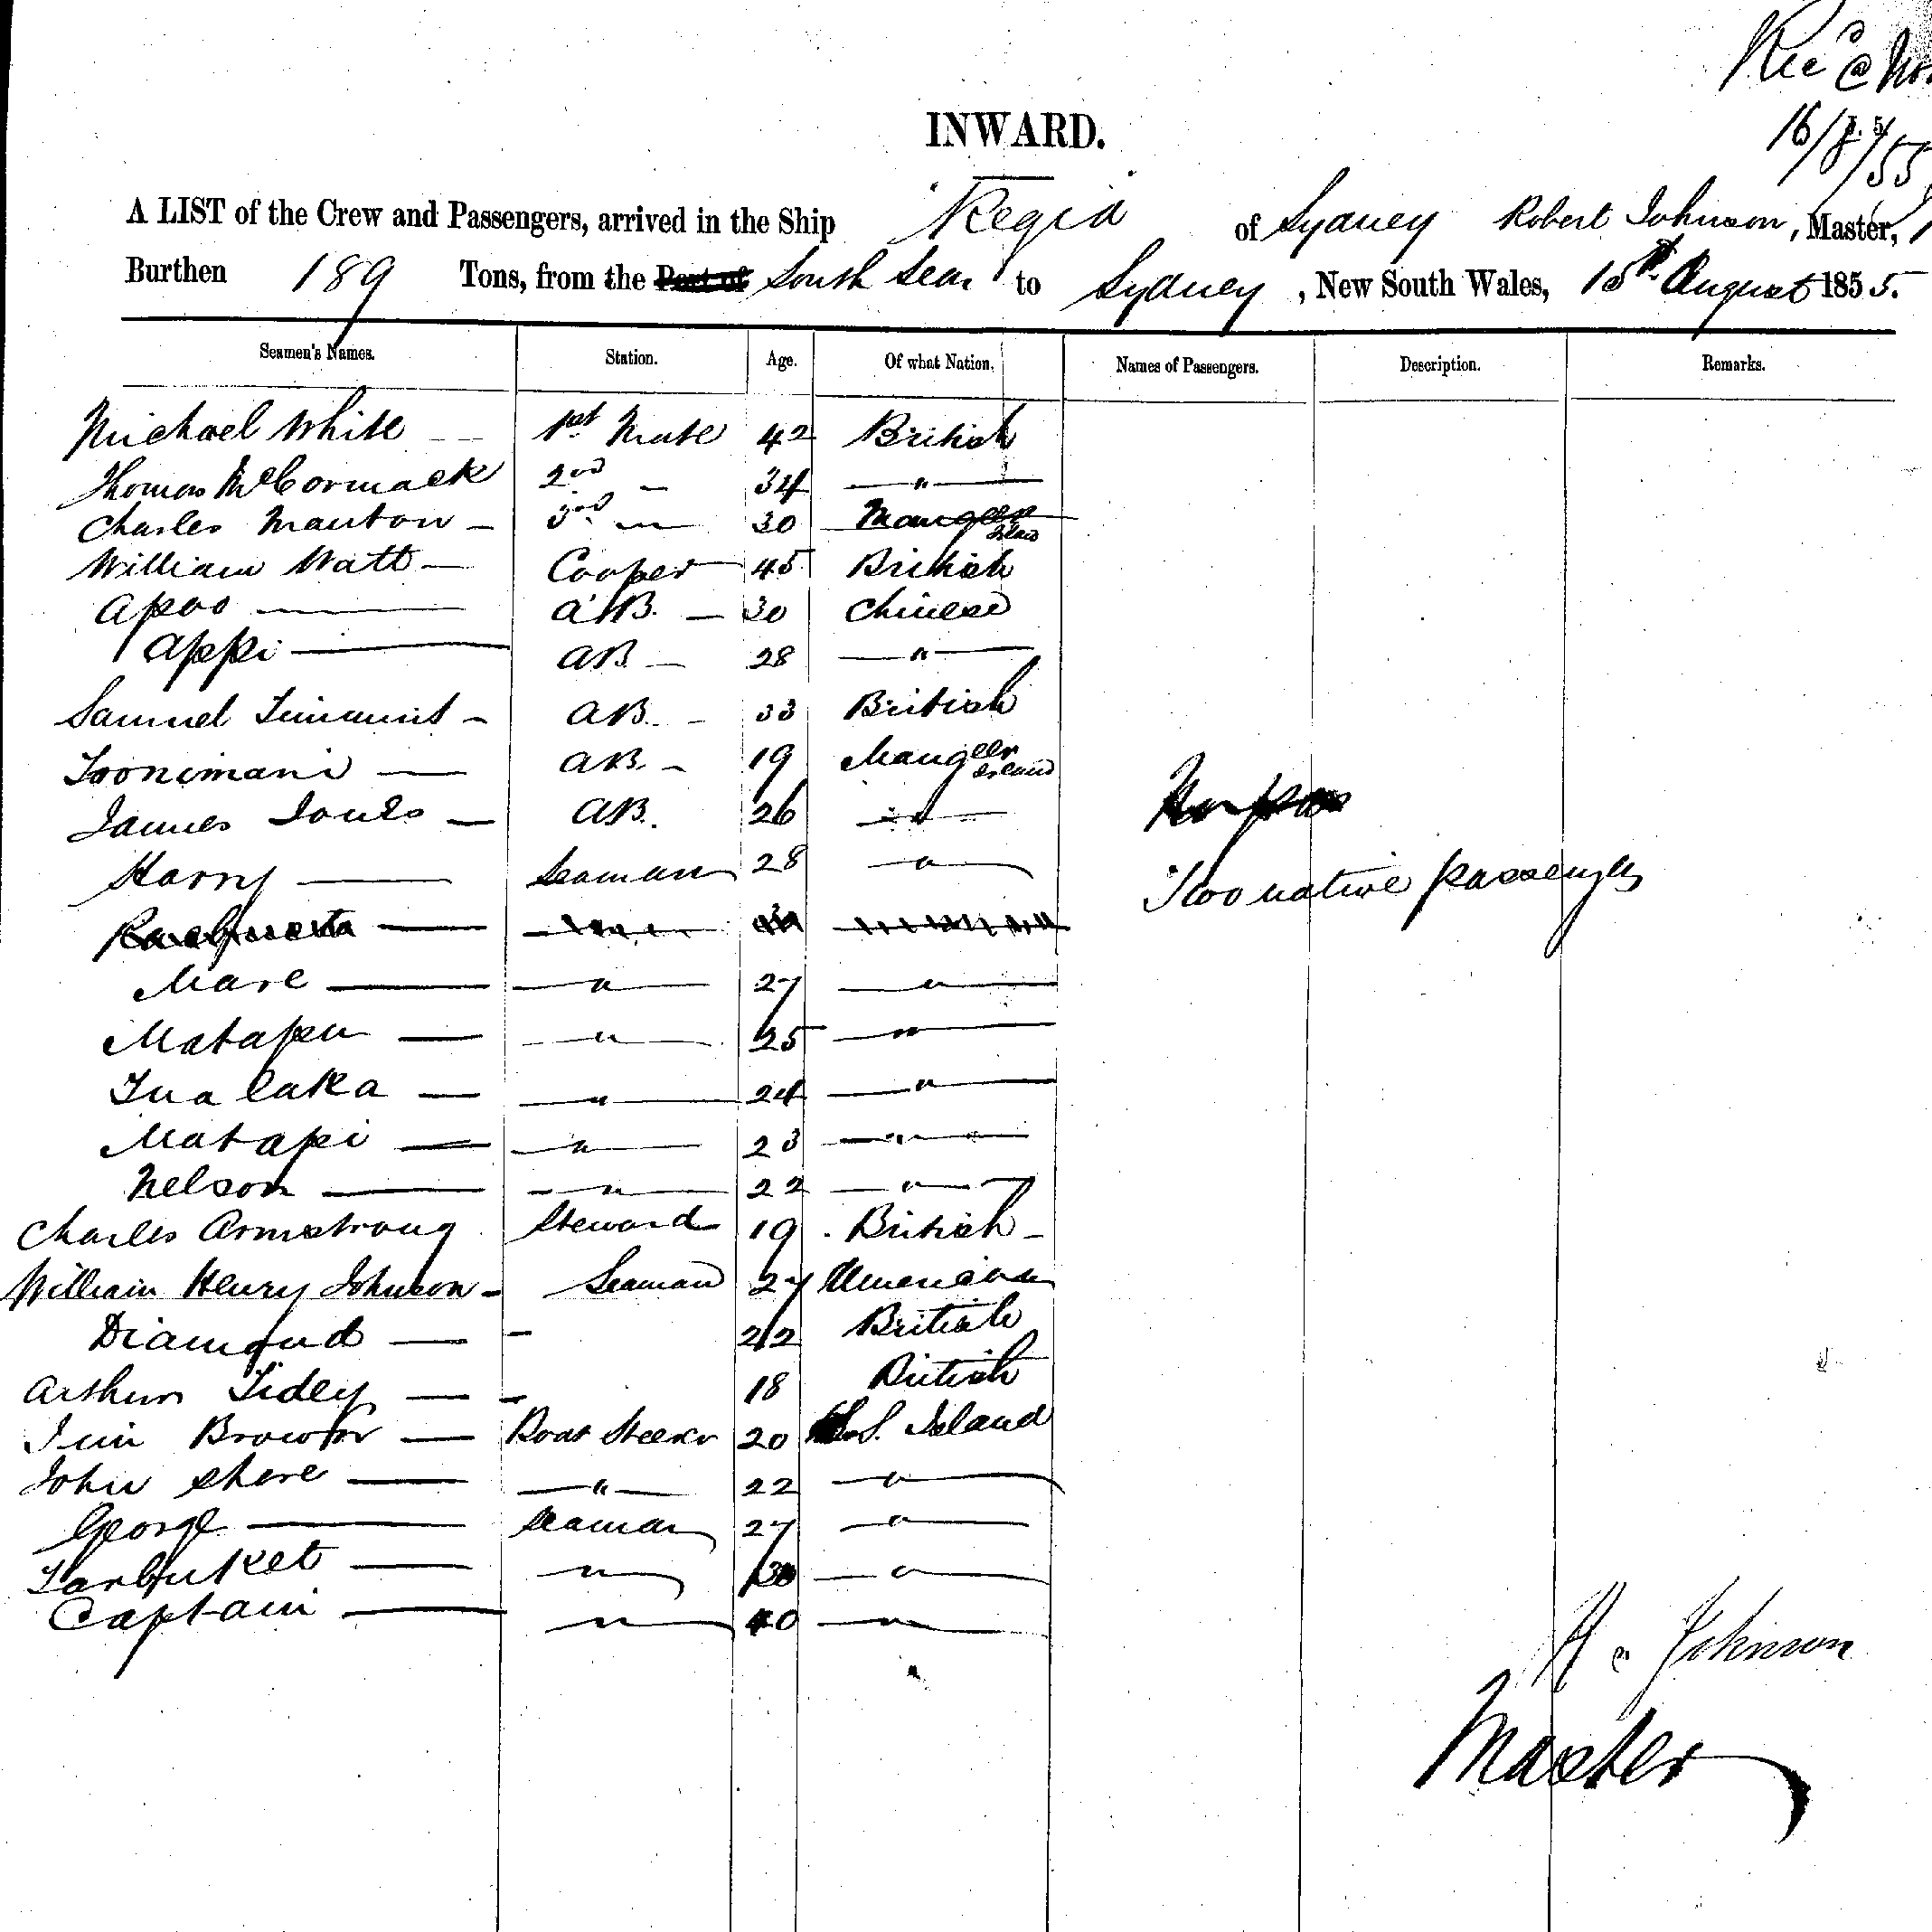 Rec @
16/8/55
INWARD.
A LIST of the Crew and Passengers, arrived in the Ship Regia of Sydney Robert Johnson, Master,
Burthen 189 Tons, from the Port of South Seas to Sydney, New South Wales, 15th August 1855.
Seamen's Names. Station. Age. Of what Nation. Names of Passengers. Description. Remarks.
Michael White 1st Mate 42 British
Thomas McCormack 2nd — 34 — " —
Charles Manton — 3rd — " — 30 Mangeer Island
William Watt — Cooper 45 British
Apoo — A.B. — 30 Chinese
Appi — AB — 28 — " —
Samuel — AB. — 33 British
Toonimani — AB. — 19 Mangeer Island
James Jones — AB. 26 — " —
Harry — Seaman 28 — " —
Two native passengers
Mare — — " — 27 — " —
Matapu — — " — 25 — " —
Tualaka — — " — 24 — " —
Matapi — — " — 23 — " —
Nelson — — " — 22 — " —
Charles Armstrong Steward 19 British —
William Henry Johnson — Seaman 27 American
Diamond — — 22 British
Arthur Tidey — — 18 British
Jim Brown — Boat Steerer 20 S. Island
John Shore — — " — 22 — " —
George — Seaman 27 — " —
Tarbuket — " 30 — " —
Captain — — " — 40 — " —
R. Johnson
Master